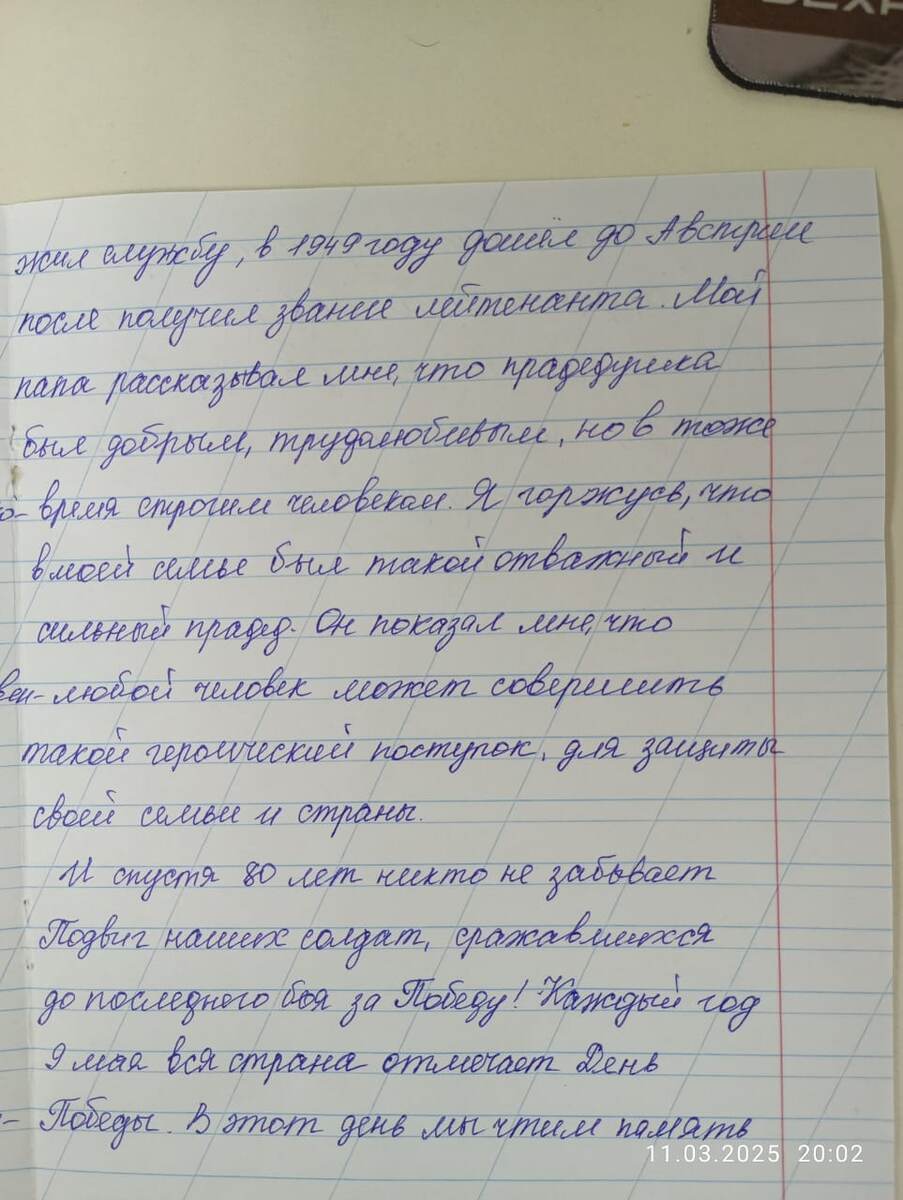 жил службу, в 1949 году дошёл до Австрии
после получил звание лейтенанта. Мой
папа рассказывал мне, что прадедушка
был добрым, трудолюбивым, но в тоже
время строгим человеком. Я горжусь, что
в моей семье был такой отважный и
сильный прадед. Он показал мне, что
любой человек может совершить
такой героический поступок, для защиты
своей семьи и страны.
И спустя 80 лет никто не забывает
Подвиг наших солдат, сражавшихся
до последнего боя за Победу! Каждый год
9 мая вся страна отмечает День
Победы. В этот день мы чтим память
11.03.2025 20:02